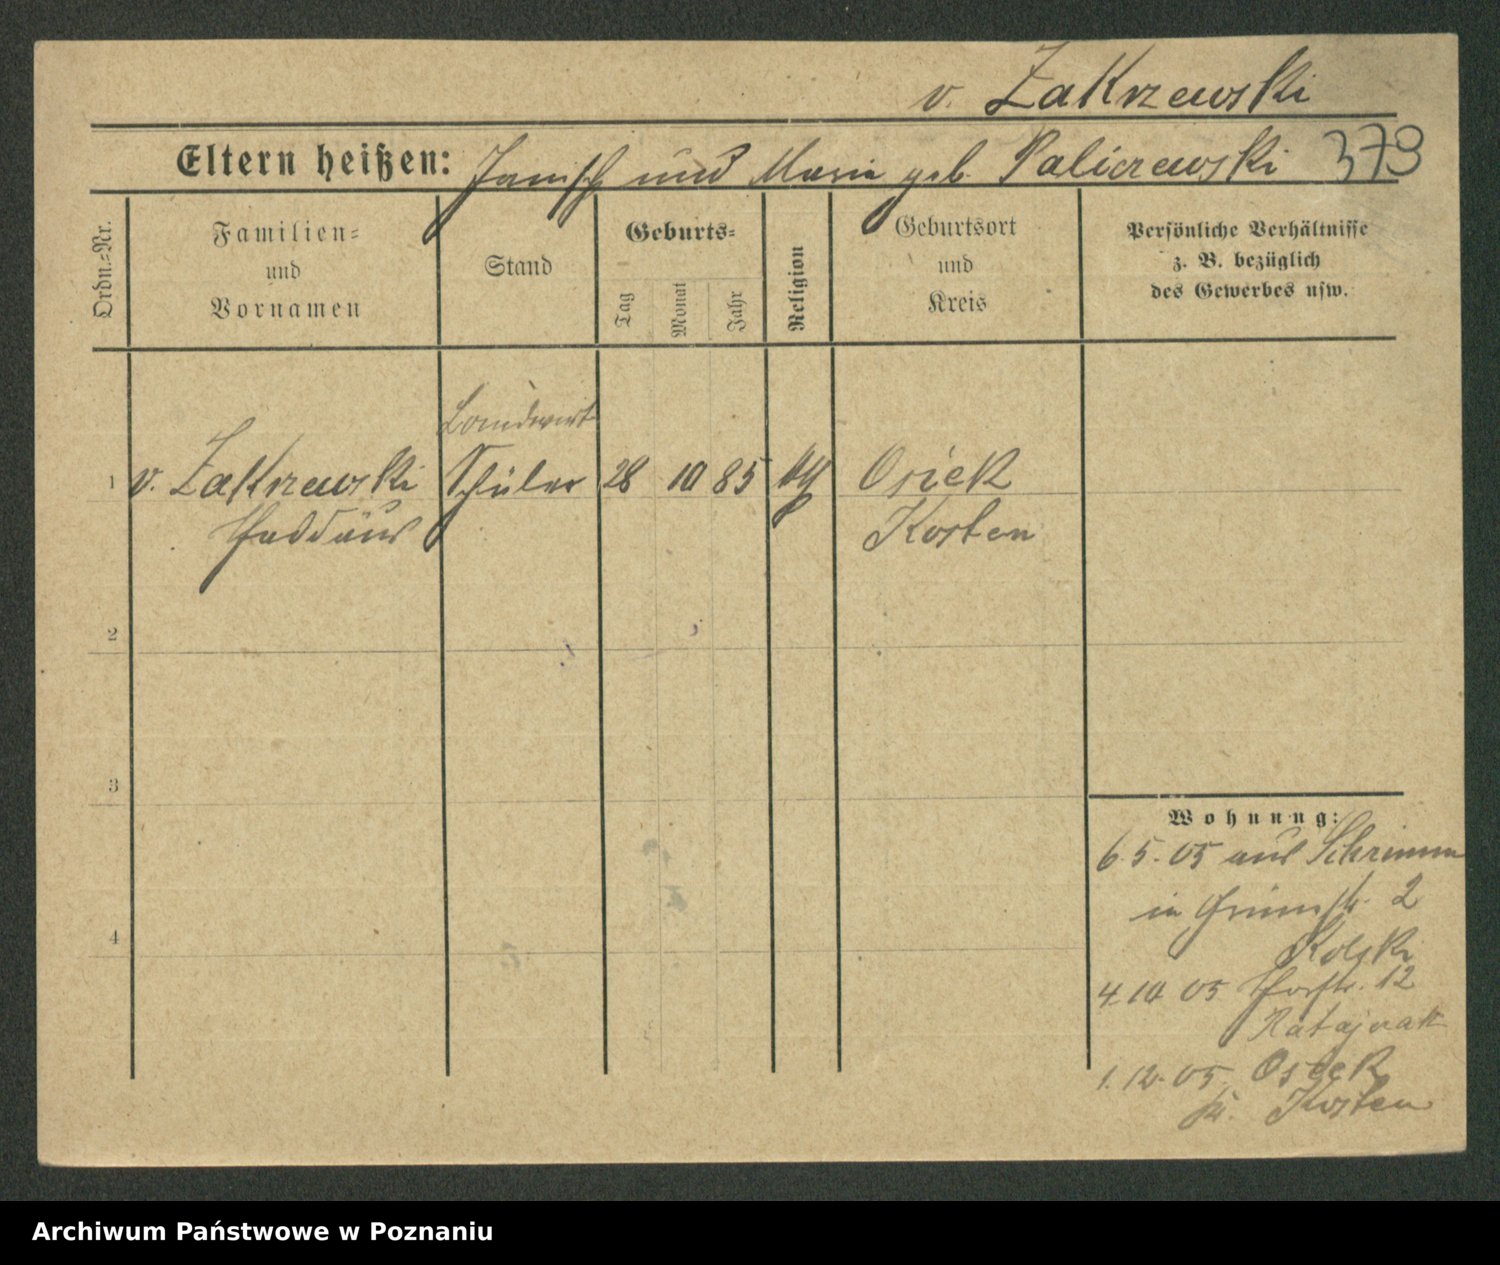 v. Zakrzewski
Eltern heißen: und Maria geb. Paliczewski 379
Ordn.=Nr.
Familien=
und
Vornamen
Stand
Geburts=
Tag
Monat
Jahr
Religion
Geburtsort
und
Kreis
Persönliche Verhältnisse
z. B. bezüglich
des Gewerbes usw.
Landwirt
1 v. Zakrzewski Schüler 28 10 85 kth Osiek
Thaddäus Kosten
2
3
4
Wohnung:
6.5.05 aus Schrimm
in Grünstr. 2
Kolski
4.10 05 Thorstr. 12
Ratajczak
1.12.05 Osiek
Kr. Kosten
Archiwum Państwowe w Poznaniu